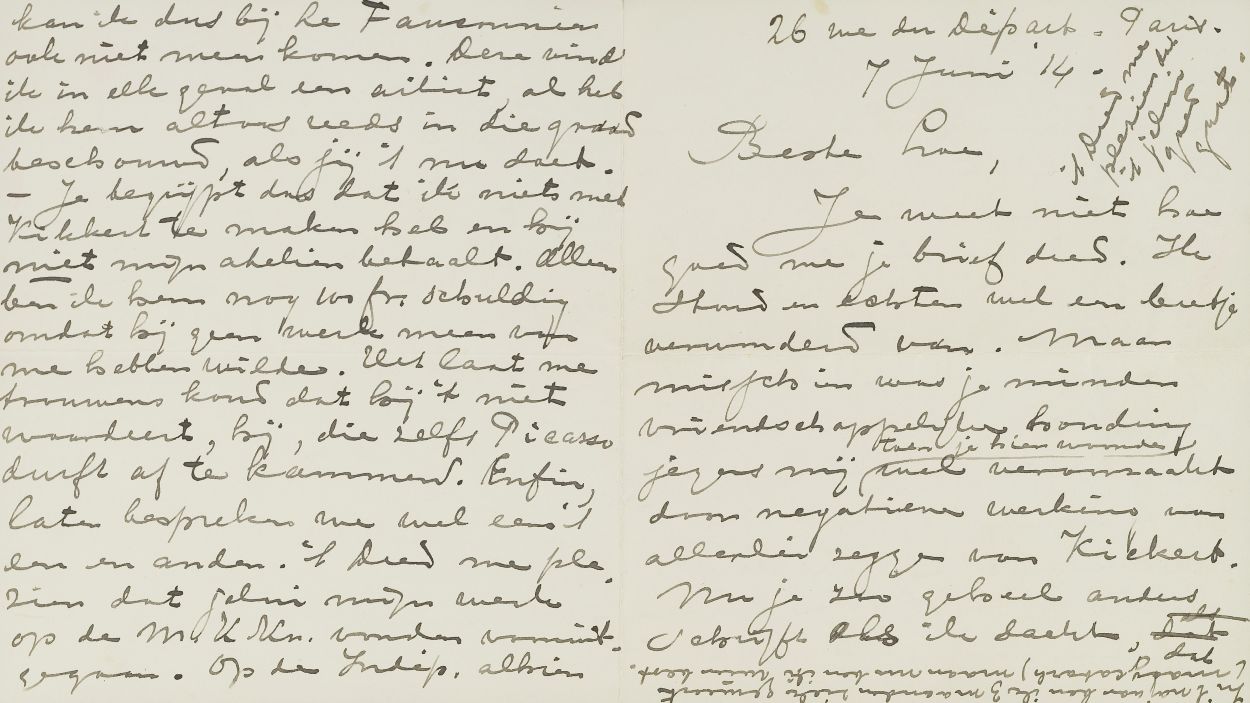 26 rue du Départ. Paris.
7 Juni '14.
Beste Lou,
Je weet niet hoe
goed me je brief deed. Ik
stond er echter wel een beetje
verwonderd van. Maar
misschien was je minder
vriendschappelijke houding
toen je hier woonde
jegens mij wel veroorzaakt
door negatieve werking van
allerlei zeggen van Kickert.
Nu je zoo geheel anders
schrijft als ik dacht, dat
dat
't deed me
plezier dat
't jelui
goed
gaat.
In 't najaar ben ik 3 maanden ziek geweest
(maagcatarrh) maar nu ben ik weer best.
kan ik dus bij Le Fauconnier
ook niet meer komen. Deze vind
ik in elk geval een artist, al heb
ik hem altoos reeds in die graad
beschouwd, als jij 't nu doet.
– Je begrijpt dus dat ik niets met
Kikkert te maken heb en hij
niet mijn atelier betaalt. Alleen
ben ik hem nog fr. schuldig
omdat hij geen werk meer van
me hebben wilde. Het laat me
trouwens koud dat hij 't niet
waardeert, hij, die zelfs Picasso
durft af te kammen. Enfin,
later bespreken we wel eens 't
een en ander. 't Deed me ple-
zier dat jelui mijn werk
op de M.K.Kr. vonden vooruit-
gegaan. Op de Indép. alhier